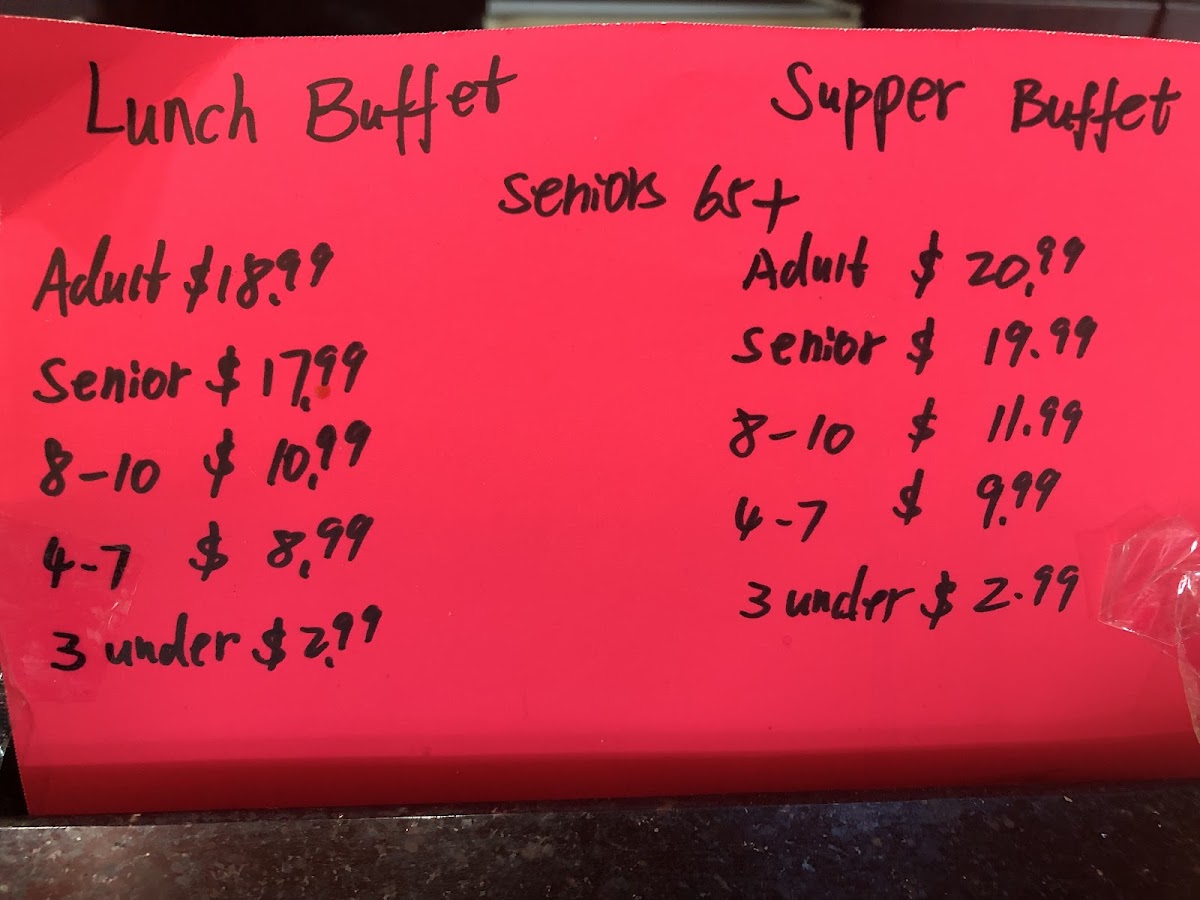 Lunch Buffet
Supper Buffet
Seniors 65+
Adult $18.99
Senior $ 17.99
8-10 $ 10.99
4-7 $ 8.99
3 under $ 2.99
Adult $ 20.99
Senior $ 19.99
8-10 $ 11.99
4-7 $ 9.99
3 under $ 2.99